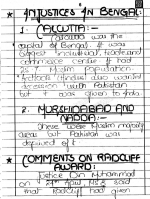 * INJUSTICES IN BENGAL:
1. CALCUTTA:
Calcutta was the
capital of Bengal. It was
biggest industrial, trade and
commerce centre. It had
Muslim population
also wanted
accession with Pakistan
but was given to India.
2. MURSHIDABAD AND
NADIA:
These were Muslim majority
areas but Pakistan was
deprived of it.
* COMMENTS ON RADCLIFF
AWARD:
Justice Din Muhammad
on said
that Radcliff had given